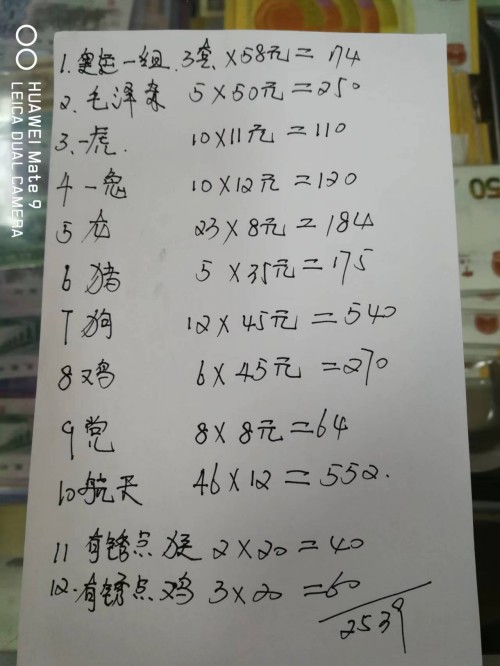 HUAWEI Mate 9
LEICA DUAL CAMERA
1. 奥运一组. 3套×58元=174
2. 毛泽东 5×50元=250
3. 一虎. 10×11元=110
4 一兔 10×12元=120
5 龙 23×8元=184
6 猪 5×35元=175
7 狗 12×45元=540
8 鸡 6×45元=270
9 党 8×8元=64
10 航天 46×12=552.
11 有锈点 猴 2×20=40
12. 有锈点 鸡 3×20=60
2539
50